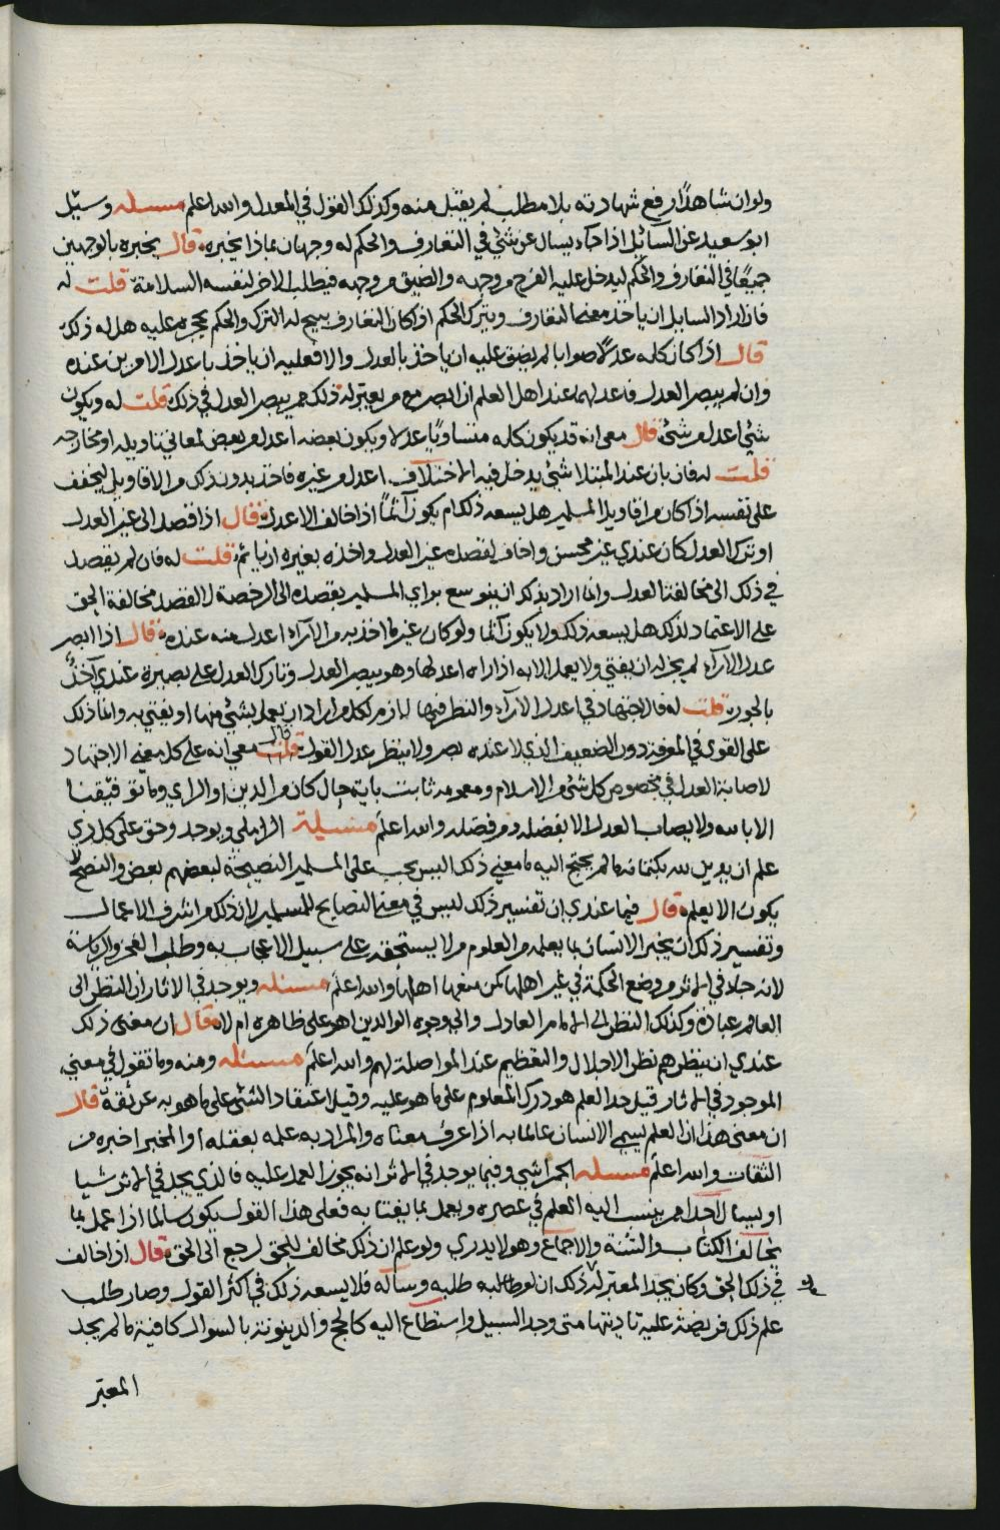 ولوان شاهدًا رفع شهادته بلا مطلب لم يقبل منه وكذلك القول في المعدل والله اعلم مسئله وسئل
ابو سعيد عن السائل اذا جاء يسال عن شئ في التعارف والحكم له وجهان بماذا يخبره قال يخبره بالوجهين
جميعًا في التعارف والحكم ليدخل عليه الفرج من وجه والضيق من وجه فيطلب الاخر لنفسه السلامة قلت له
فان اراد السايل ان ياخذ معنى التعارف ويترك الحكم اذا كان التعارف يبيح له الترك والحكم يحجره عليه هل له ذلك
قال اذا كان كله عدلا صوابا لم يضق عليه ان ياخذ بالعدل والا فعليه ان ياخذ باعدل الامرين عنده
وان لم يبصر العدل فاعدلهما عند اهل العلم ان ابصر مع من يعتبر له ذلك ممن يبصر العدل في ذلك قلت له ويكون
شئ اعدل من شئ قال معي انه قد يكون كله متساويًا عدلا ويكون بعضه اعدل من بعض لمعاني تاويله او مخارجه
قلت له فان بان عند المبتلا شئ يدخل فيه الاختلاف اعدل من غيره فاخذ بدون ذلك من الاقاويل ليخفف
على نفسه اذا كان من اقاويل المسلمين هل يسعه ذلك ام يكون آثمًا اذا خالف الاعدل قال اذا قصد الى غير العدل
او ترك العدل كان عندي غير محسن واخاف لقصده غير العدل واخذه بغيره ان ياثم قلت له فان لم يقصد
في ذلك الى مخالفة العدل وانما اراد بذلك ان يتوسع براي المسلمين بقصده الى الرخصة لا لقصد مخالفة الحق
على الاعتماد لذلك هل يسعه ذلك ولا يكون آثما ولو كان غير ما اخذ به من الآراء اعدل منه عنده قال اذا ابصر
عدل الآراء لم يجز له ان يفتي ولا يعمل الا به اذا راه اعدلها وهو يبصر العدل وتارك العدل على بصيرة عندي آخذٌ
بالجور قلت له فالاجتهاد في اعدل الآراء والنظر فيها لازم لكل من اراد ان يعمل بشئ منها او يفتي به وانما ذلك
على القوي في المعرفة دون الضعيف الذي لا عنده بصر ولا ينظر عدل القول قال معي انه على كل معنى الاجتهاد
لاصابة العدل في مخصوص كل شئ من الاسلام وعمومه ثابت باية حال كان من الدين او الراي وما توفيقنا
الا بالله ولا يصاب العدل الا بفضله ومن فضله والله اعلم مسئلة الزاملي ويوجد وحق على كل ذي
علم ان يدين لله بكتمانه ما لم يحتج اليه ما معنى ذلك اليس يجب على المسلمين النصيحة لبعضهم بعض والنصح لا
يكون الا بعلم قال فيما عندي ان تفسير ذلك ليس في معنى النصايح للمسلمين لان ذلك من اشرف الاعمال
وتفسير ذلك ان يخبر الانسان بما يعلمه من العلوم من لا يستحقه على سبيل الاعجاب به وطلب الفخر والرياسة
لانه جاء في الاثر من وضع الحكمة في غير اهلها كمن منعها اهلها والله اعلم مسئله ويوجد في الاثار ان النظر الى
العالم عبادة وكذلك النظر الى الامام العادل والى وجوه الوالدين اهو على ظاهره ام لا قال ان معنى ذلك
عندي ان ينظرهم نظر الاجلال والتعظيم عند المواصلة لهم والله اعلم مسئله ومنه وما تقول في معنى
الموجود في الاثار قيل حد العلم هو درك المعلوم على ما هو عليه وقيل اعتقاد الشئ على ما هو به عن ثقة قال
ان معنى هذا ان العلم يسمى الانسان عالما به اذا عرف معناه والمراد به علمه بعقله او المخبر اخبره من
الثقات والله اعلم مسئله الحمراشدي وفيما يوجد في الاثر انه يجوز العمل عليه فالذي يجد في الاثر شيا
او يسال احدا ممن ينسب اليه العلم في عصره ويعمل بما يفتا به فعلى هذا القول يكون سالما اذا عمل بما
يخالف الكتاب والسنة والاجماع وهو لا يدري ولو علم ان ذلك مخالف للحق لرجع الى الحق قال اذا خالف
في ذلك الحق وكان يجد المعتبر له ذلك ان لو طالبه طلبه وساله فلا يسعه ذلك في اكثر القول وصار طلب
علم ذلك فريضة عليه تاديتها متى وجد السبيل واستطاع اليه كالحج والدينونة بالسوال كافية ما لم يجد
المعتبر